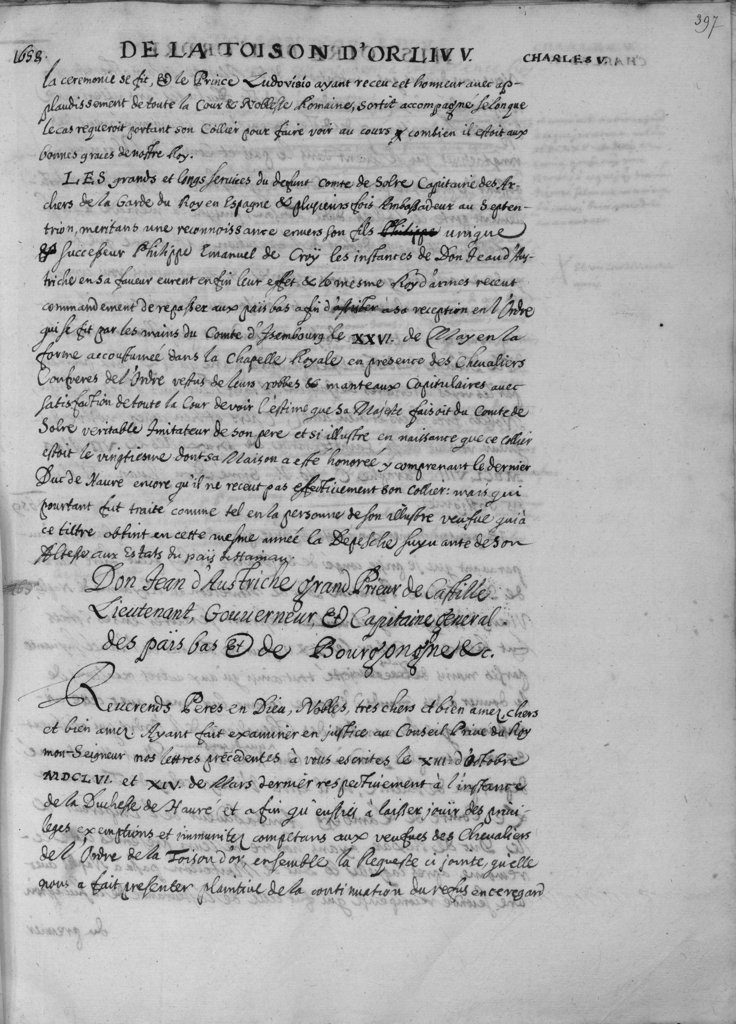 397
1658. DE LA TOISON D'OR LIV V. CHARLES V.
la ceremonie se fit, & le Prince Ludovisio ayant receu cet honneur avec ap-
plaudissement de toute la Cour & Noblesse Romaine, sortit accompagne selon que
le cas requeroit portant son Collier pour faire voir au cours combien il estoit aux
bonnes graces de nostre Roy.
LES grands et longs services du defunt Comte de Solre Capitaine des Ar-
chers de la Garde du Roy en Espagne & plusieurs fois Ambassadeur au Septen-
trion, meritans une reconnoissance envers son fils Philippe unique
& successeur Philippe Emanuel de Croÿ les instances de Don Jean d'Aus-
triche en sa faveur eurent enfin leur effet & le mesme Roy d'armes receut
commandement de repasser aux pais bas afin d'assister a sa reception en l'Ordre
qui se fit par les mains du Comte d'Isembourg le XXVI. de May en la
forme accoustumée dans la Chapelle Royale en presence des Chevaliers
Confreres de l'Ordre vestus de leurs robbes & manteaux Capitulaires avec
satisfaction de toute la Cour de voir l'estime que sa Majesté faisoit du Comte de
Solre veritable Imitateur de son pere et si illustre en naissance que ce collier
estoit le vingtiesme dont sa Maison a esté honoreé y comprenant le dernier
Duc de Havré encore qu'il ne receut pas effectivement son collier: mais qui
pourtant fut traité comme tel en la personne de son illustre veufue qui à
ce tiltre obtint en cette mesme année la Depesche suyvante de son
Altesse aux Estats du pais d'Hainau.
Don Jean d'Austriche grand Prieur de Castille
Lieutenant, Gouverneur, et Capitaine general
des païs bas et de Bourgongne &c.
Reverends Peres en Dieu, Nobles, tres chers et bien amez, chers
et bien amez. Ayant fait examiner en justice au Conseil Privé du Roy
mon Seigneur nos lettres précedentes à vous escrites le XIII. d'Octobre
MDCLVI. et XIV. de Mars dernier respectivement à l'instance
de la Duchesse de Havré et afin qu'eussiez à laisser joüir des privi-
leges exemptions et immunitez competans aux veufues des Chevaliers
de l'Ordre de la Toison d'or, ensemble la Requeste ci jointe, qu'elle
nous a fait presenter plaintive de la continuation du refus en ce regard